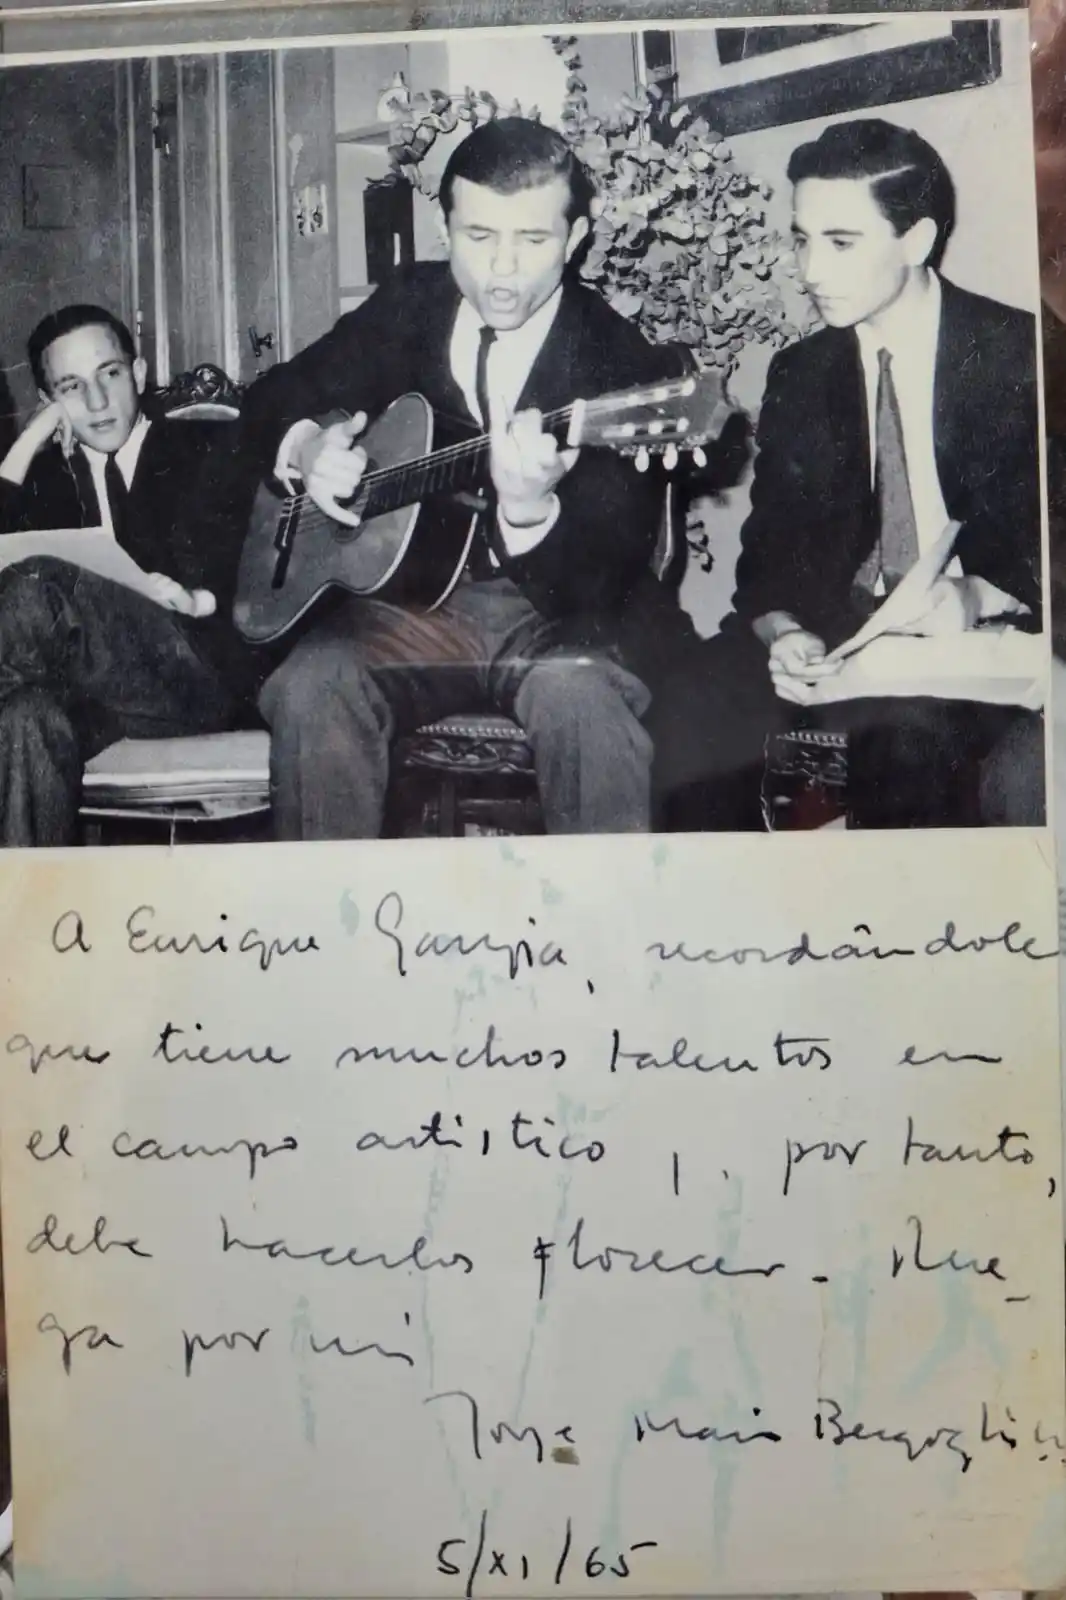 A Enrique Garyia, recordándole
que tiene muchos talentos en
el campo artístico, , por tanto,
debe hacerlos florecer. Rue-
ga por mí
Jorge Mario Bergoglio
5/XI/65